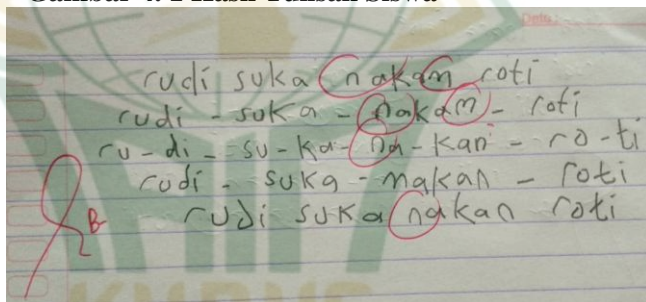 Gambar 4. 1 Hasil Tulisan Siswa
Date:
rudi suka nakam roti
rudi - suka - nakam - roti
ru - di - su - ka - na - kan - ro - ti
rudi - suka - makan - roti
rudi suka nakan roti
B
KUDUS